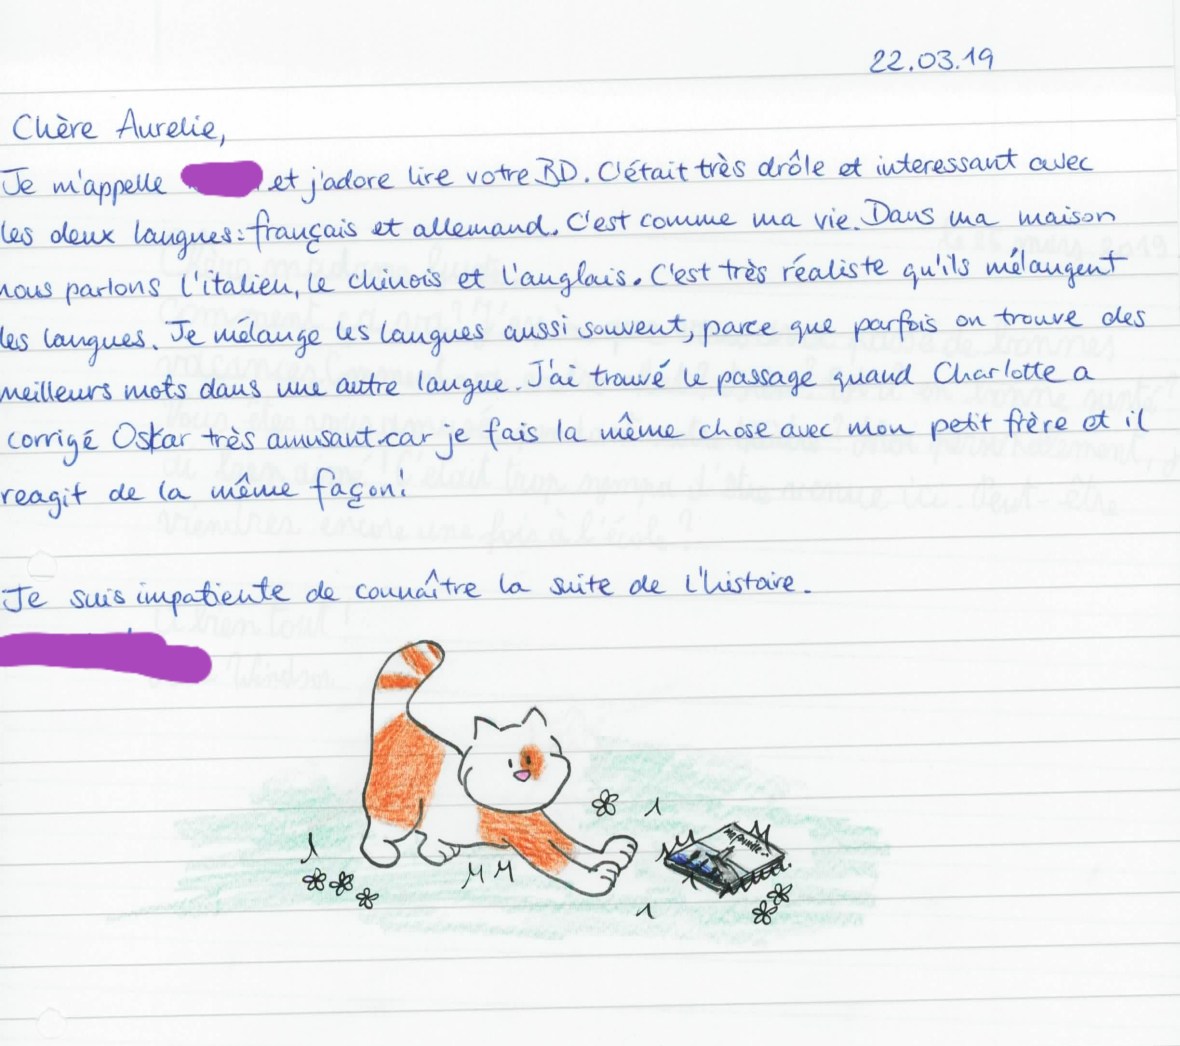 22.03.19
Chère Aurelie,
Je m'appelle et j'adore lire votre BD. C'était très drôle et interessant avec
les deux langues: français et allemand. C'est comme ma vie. Dans ma maison
nous parlons l'italien, le chinois et l'anglais. C'est très réaliste qu'ils mélangent
les langues. Je mélange les langues aussi souvent, parce que parfois on trouve des
meilleurs mots dans une autre langue. J'ai trouvé le passage quand Charlotte a
corrigé Oskar très amusant car je fais la même chose avec mon petit frère et il
reagit de la même façon!
Je suis impatiente de connaître la suite de l'histoire.